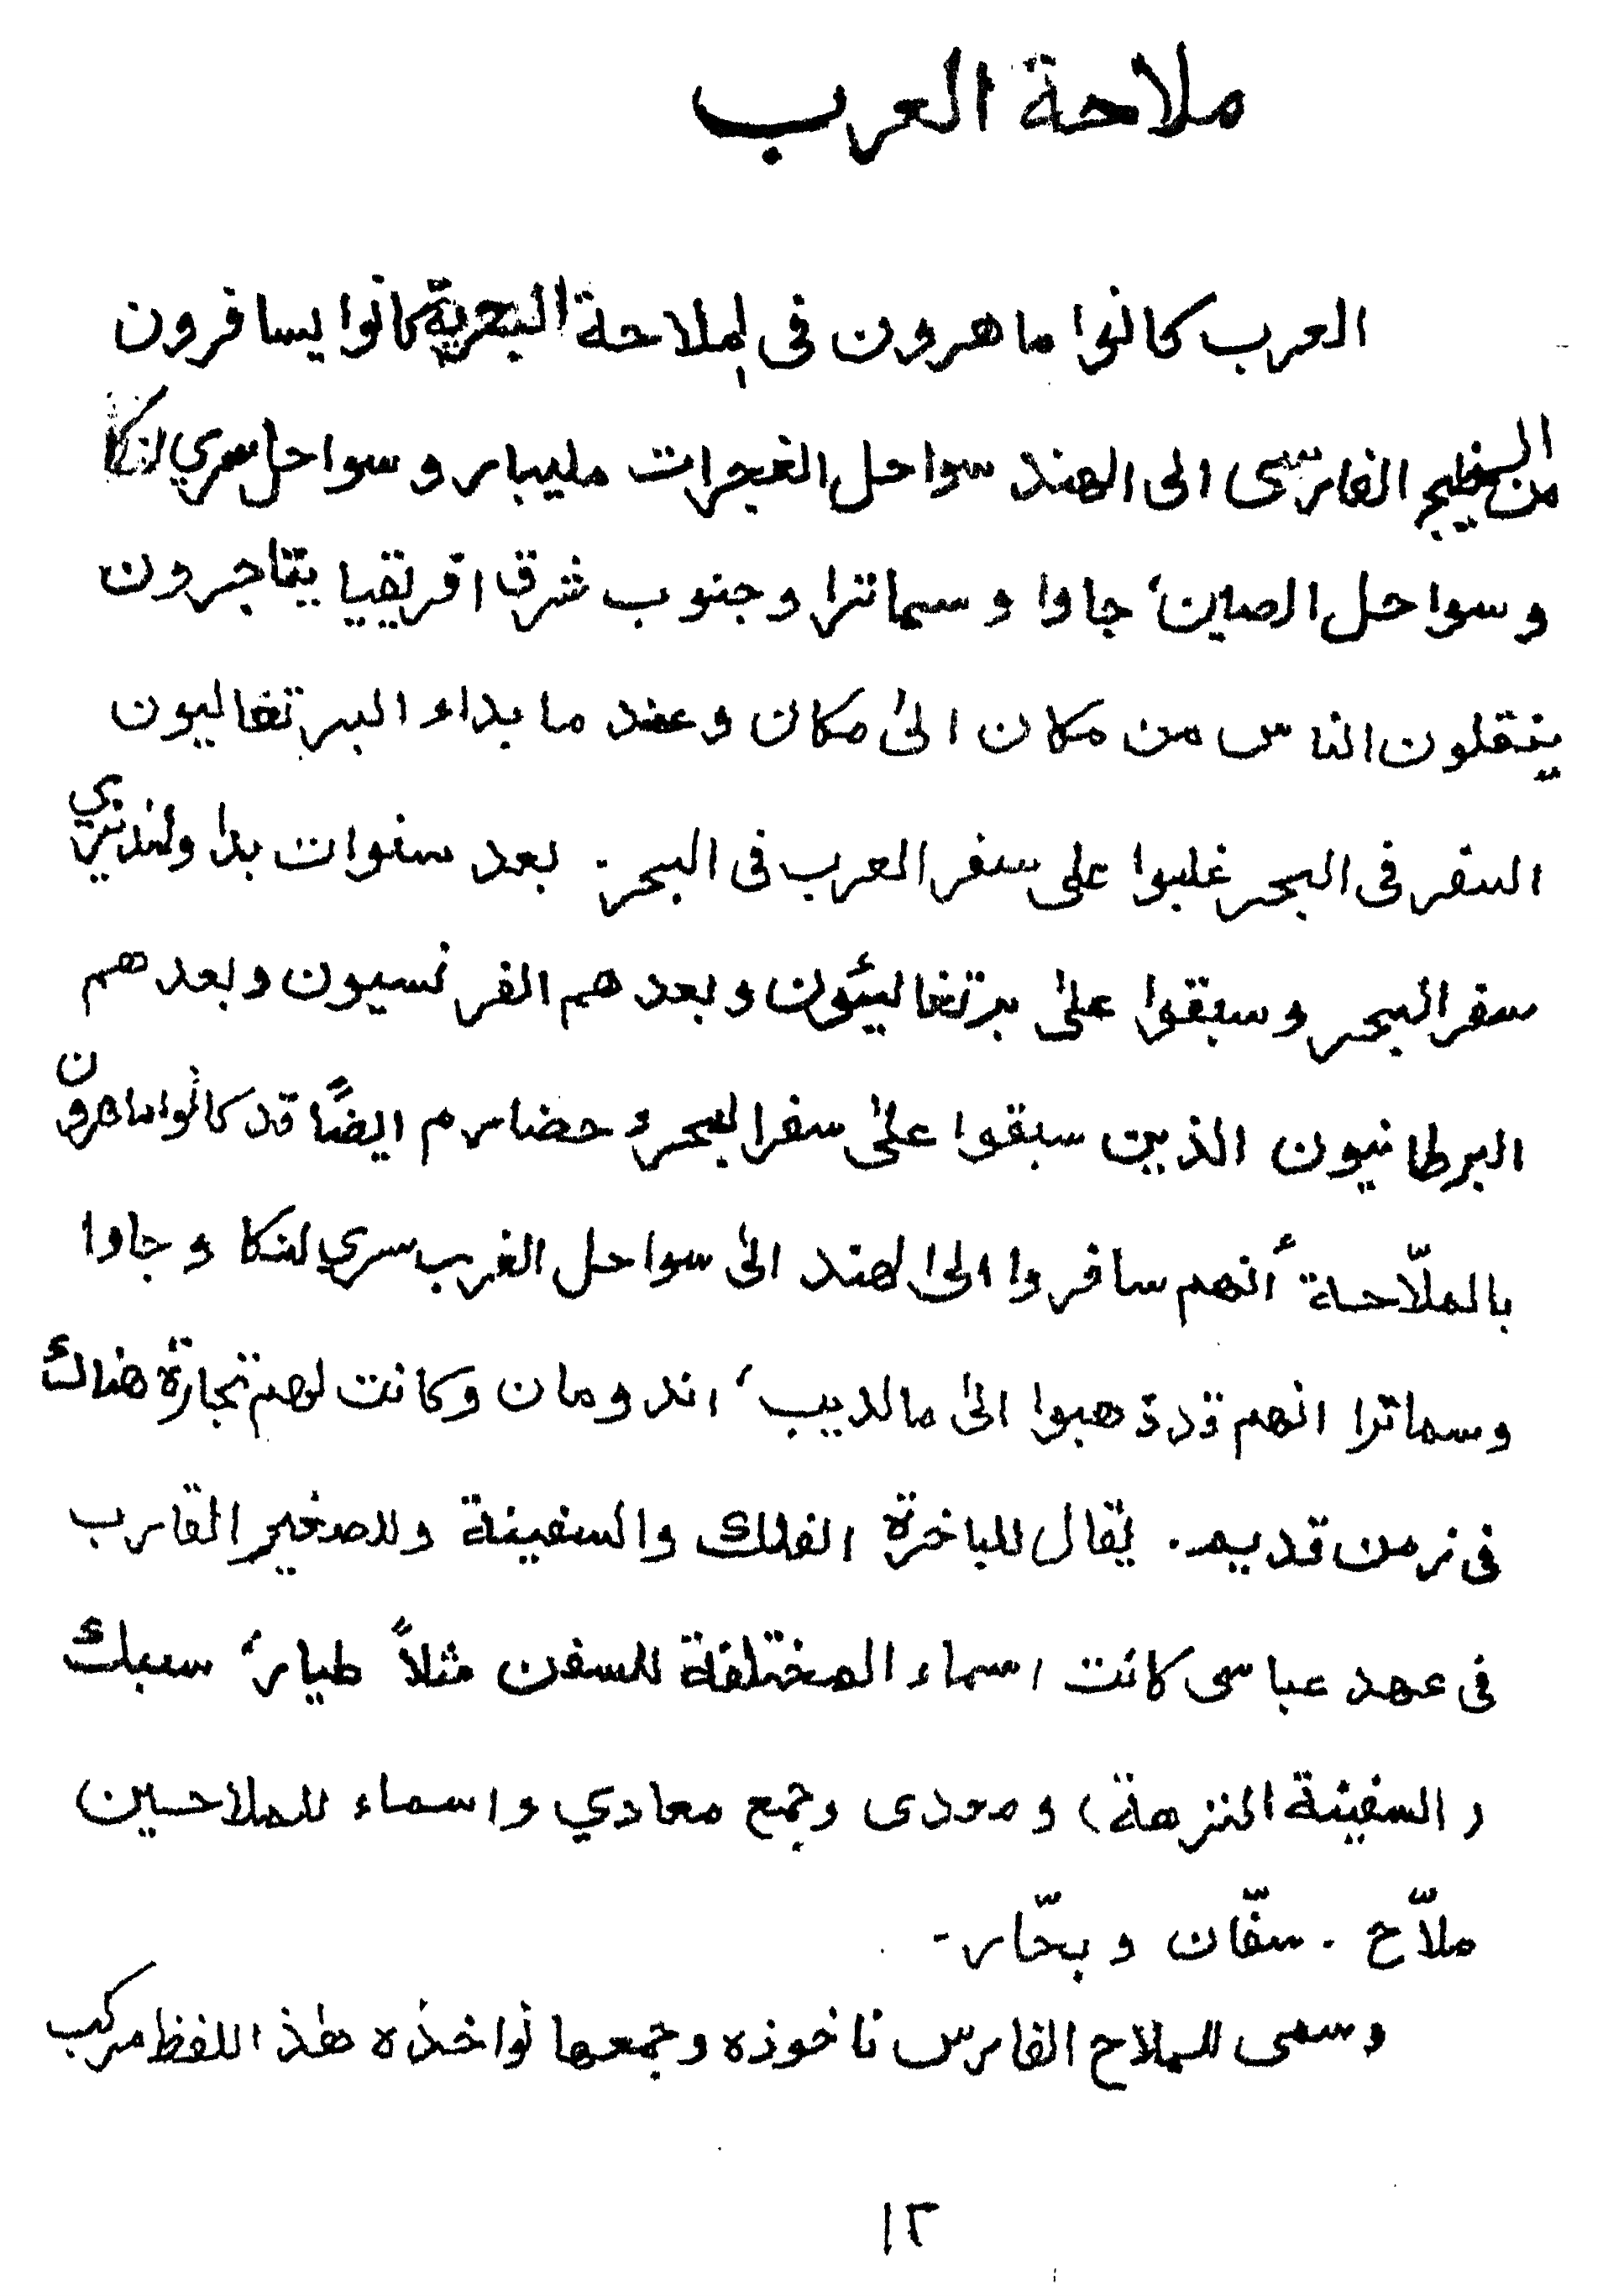 ملاحة العرب
العرب كانوا ماهرون فى الملاحة البحرية كانوا يسافرون
من الخليج الفارسى الى الهند سواحل الغجرات مليبار و سواحل سري لنكا
و سواحل الصين، جاوا و سيماترا و جنوب شرق افريقيا يتاجرون
ينتقلون الناس من مكان الىٰ مكان و عند ما بداء البرتغاليون
السفر فى البحر غلبوا على سفر العرب فى البحر. بعد سنوات بدا ولنديزي
سفر البحر و سبقوا علىٰ برتغاليئون و بعد هم الفرنسيون و بعد هم
البرطانيون الذين سبقوا علىٰ سفر البحر و حضارم ايضًا قد كانوا ماهرون
بالملّاحة أنهم سافروا الى الهند الىٰ سواحل الغرب سري لنكا و جاوا
و سماترا انهم قد ذهبوا الىٰ مالديب، اندومان وكانت لهم تجارة هناك
فى زمن قديم. يقال للباخرة الفلك والسفينة وللصغير القارب
فى عهد عباسى كانت اسماء المختلفة للسفن مثلاً طيار، سبك
(السفينة النزهة) و معدى وجمع معادي و اسماء للملاحين
ملاّح . سفّان و بحّار-
و سمى للملاح الفارس ناخوذه وجمعها نواخذه هٰذ اللفظ مركب
١٢